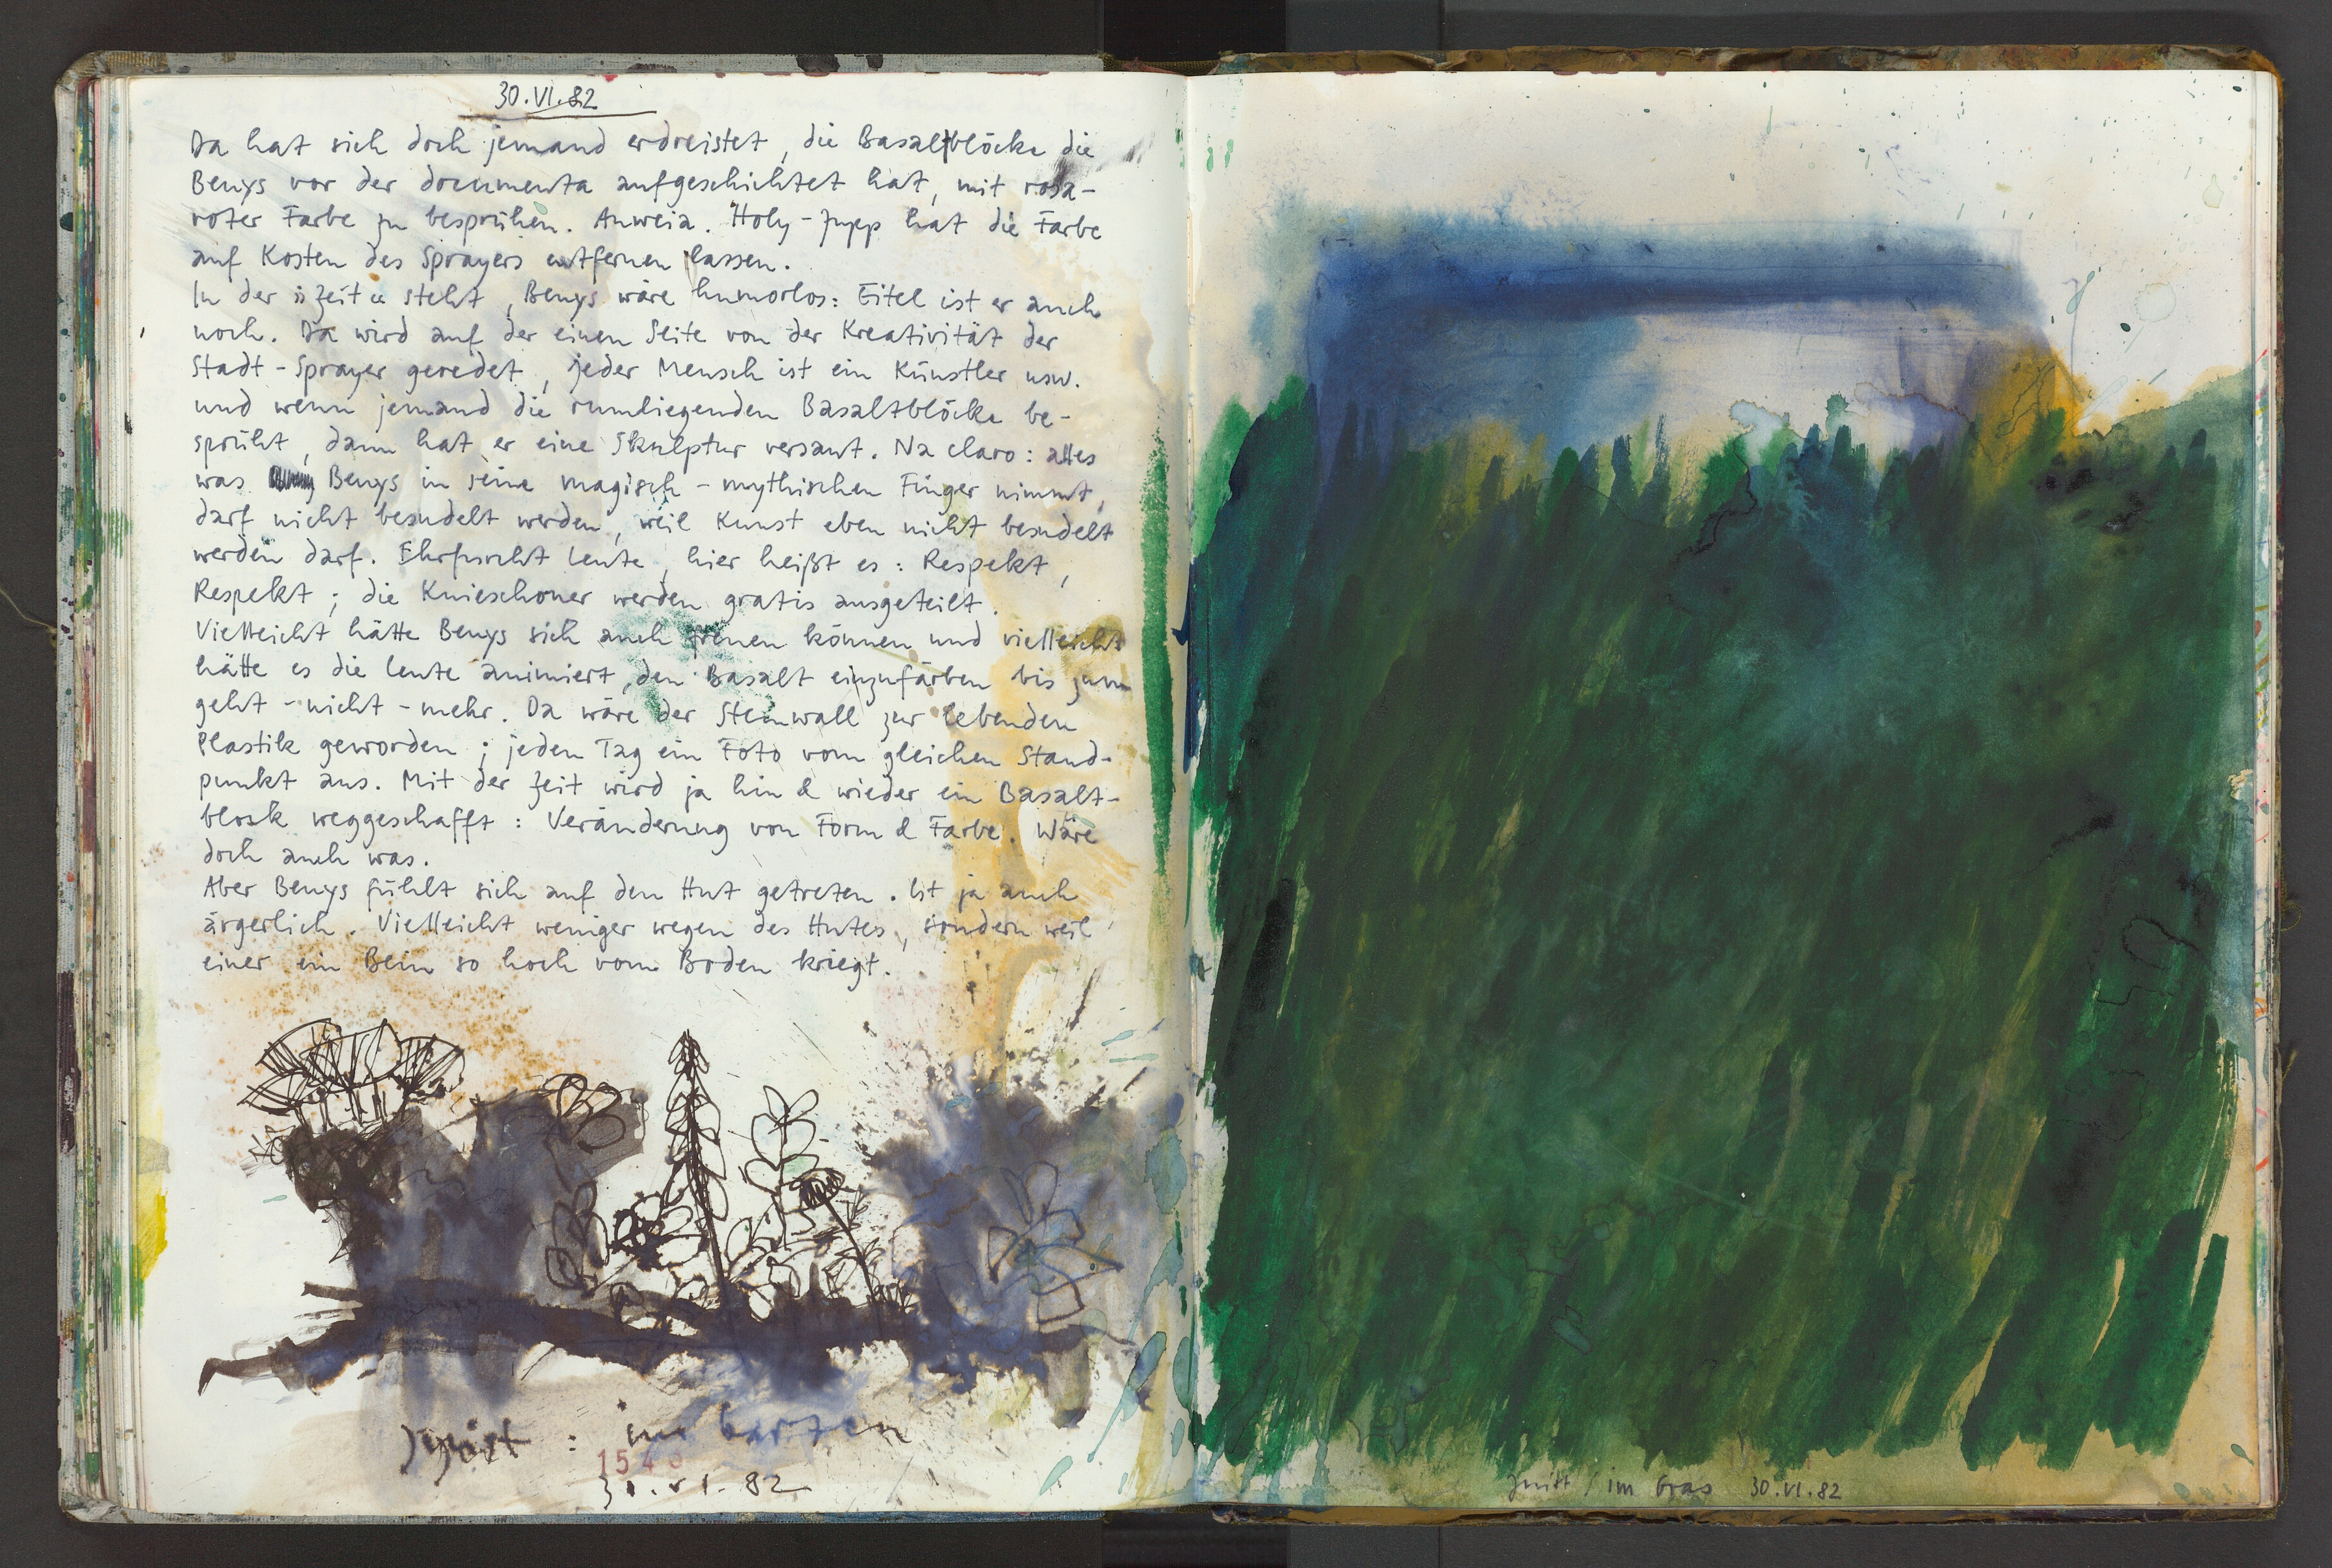 30.VI.82
Da hat sich doch jemand erdreistet, die Basaltblöcke die
Beuys vor der documenta aufgeschichtet hat, mit rosa-
roter Farbe zu besprühen. Auweia. Holy-Jupp hat die Farbe
auf Kosten des Sprayers entfernen lassen.
In der »Zeit« steht, Beuys wäre humorlos: Eitel ist er auch
noch. Da wird auf der einen Seite von der Kreativität der
Stadt-Sprayer geredet, jeder Mensch ist ein Künstler usw.
und wenn jemand die rumliegenden Basaltblöcke be-
sprüht, dann hat er eine Skulptur versaut. Na claro: alles
was Beuys in seine magisch-mythischen Finger nimmt,
darf nicht besudelt werden, weil Kunst eben nicht besudelt
werden darf. Ehrfurcht Leute, hier heißt es: Respekt,
Respekt; die Knieschoner werden gratis ausgeteilt.
Vielleicht hätte Beuys sich auch freuen können und vielleicht
hätte es die Leute animiert, den Basalt einzufärben bis zum
geht-nicht-mehr. Da wäre der Steinwall zur lebenden
Plastik geworden; jeden Tag ein Foto vom gleichen Stand-
punkt aus. Mit der Zeit wird ja hin & wieder ein Basalt-
block weggeschafft: Veränderung von Form & Farbe. Wäre
doch auch was.
Aber Beuys fühlt sich auf den Hut getreten. Ist ja auch
ärgerlich. Vielleicht weniger wegen des Hutes, sondern weil
einer ein Bein so hoch vom Boden kriegt.
: im Garten
154
30.VI.82
/ im Gras 30.VI.82